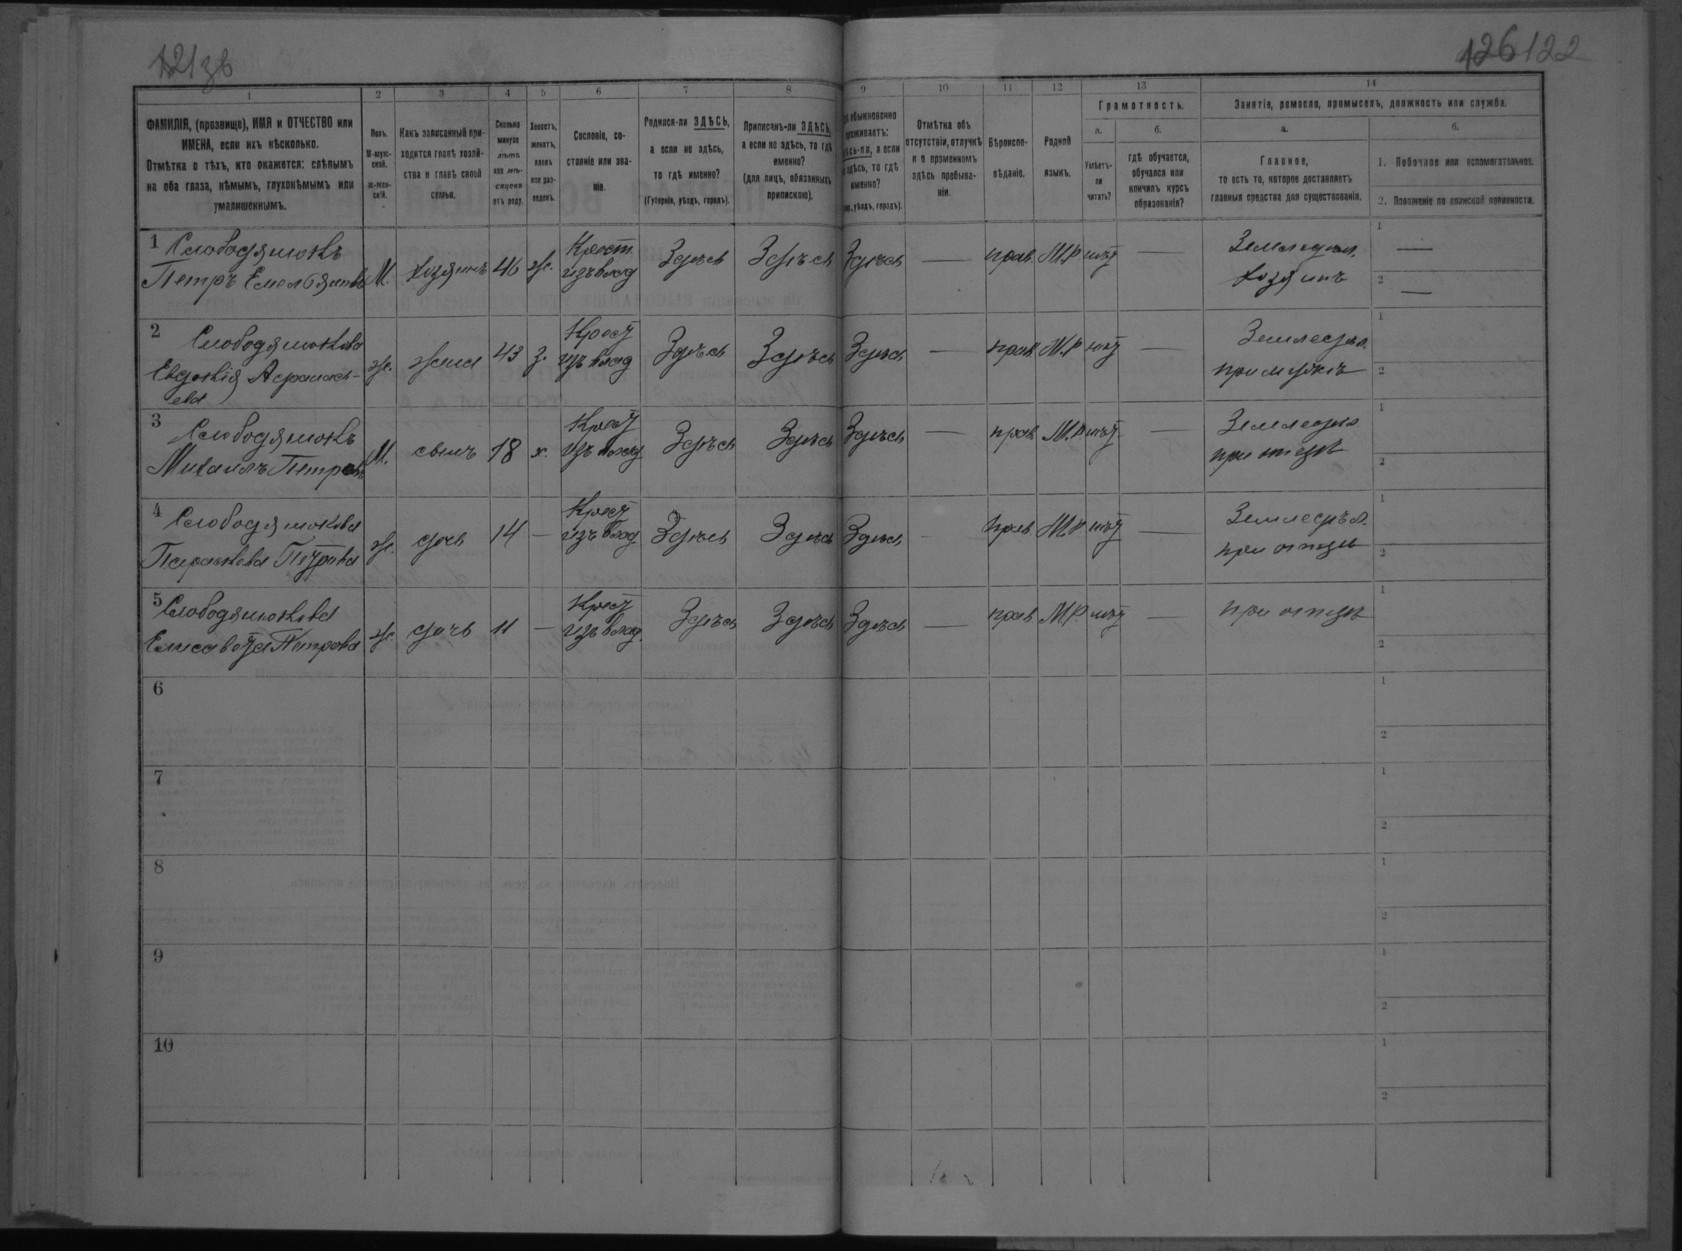 121 зв
126 122
1 2 3 4 5 6 7 8 9 10 11 12 13 14
ФАМИЛІЯ, (прозвище), ИМЯ и ОТЧЕСТВО или
ИМЕНА, если ихъ нѣсколько.
Отмѣтка о тѣхъ, кто окажется: слѣпымъ
на оба глаза, нѣмымъ, глухонѣмымъ или
умалишеннымъ.
Полъ.
М-муж-
ской.
ж-жен-
скій.
Какъ записанный при-
ходится главѣ хозяй-
ства и главѣ своей
семьи.
Сколько
минуло
лѣтъ
или мѣ-
сяцевъ
отъ роду.
Холостъ,
женатъ,
вдовъ
или раз-
веденъ.
Сословіе, со-
стояніе или зва-
ніе.
Родился-ли ЗДѢСЬ,
а если не здѣсь,
то гдѣ именно?
(Губернія, уѣздъ, городъ).
Приписанъ-ли ЗДѢСЬ,
а если не здѣсь, то гдѣ
именно?
(для лицъ, обязанныхъ
припискою).
обыкновенно
проживаетъ:
здѣсь-ли, а если
не здѣсь, то гдѣ
именно?
уѣздъ, городъ).
Отмѣтка объ
отсутствіи, отлучкѣ
и о временномъ
здѣсь пребыва-
ніи.
Вѣроиспо-
вѣданіе.
Родной
языкъ.
Грамотность.
а.
Умѣетъ-
ли
читать?
б.
гдѣ обучается,
обучался или
кончилъ курсъ
образованія?
Занятія, ремесло, промыселъ, должность или служба.
а.
Главное,
то есть то, которое доставляетъ
главныя средства для существованія.
б.
1. Побочное или вспомогательное.
2. Положеніе по воинской повинности.
1 Слободянюкъ
Петръ Емельяновъ М. хозяинъ 46 ж. Крест. изъ влад Здѣсь Здѣсь Здѣсь — прав. М.Р нѣт — Земледѣл. хозяинъ
1 —
2 —
2 Слободянюкова
Евдокія Афанась-
ева ж. жена 43 з. Крест изъ влад Здѣсь Здѣсь Здѣсь — прав. М.Р нѣт — Земледѣл. при мужѣ
1
2
3 Слободянюкъ
Михаилъ Петровъ М. сынъ 18 х. Крест изъ влад Здѣсь Здѣсь Здѣсь — прав. М.Р нѣт — Земледѣл при отцѣ
1
2
4 Слободянюкова
Параскева Петрова ж. дочь 14 — Крест изъ влад Здѣсь Здѣсь Здѣсь — прав. М.Р нѣт — Земледѣл. при отцѣ
1
2
5 Слободянюкова
Елисавета Петрова ж. дочь 11 — Крест изъ влад. Здѣсь Здѣсь Здѣсь — прав. М.Р. нѣт — при отцѣ
1
2
6
1
2
7
1
2
8
1
2
9
1
2
10
1
2